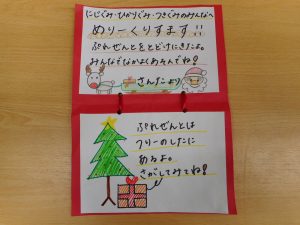 にじぐみ・ひかりぐみ・つきぐみのみんなへ
めりーくりすます!!
ぷれぜんとをとどけにきたよ。
みんなでなかよくあそんでね!
さんたより
ぷれぜんとは
ツリーのしたに
あるよ。
さがしてみてね!